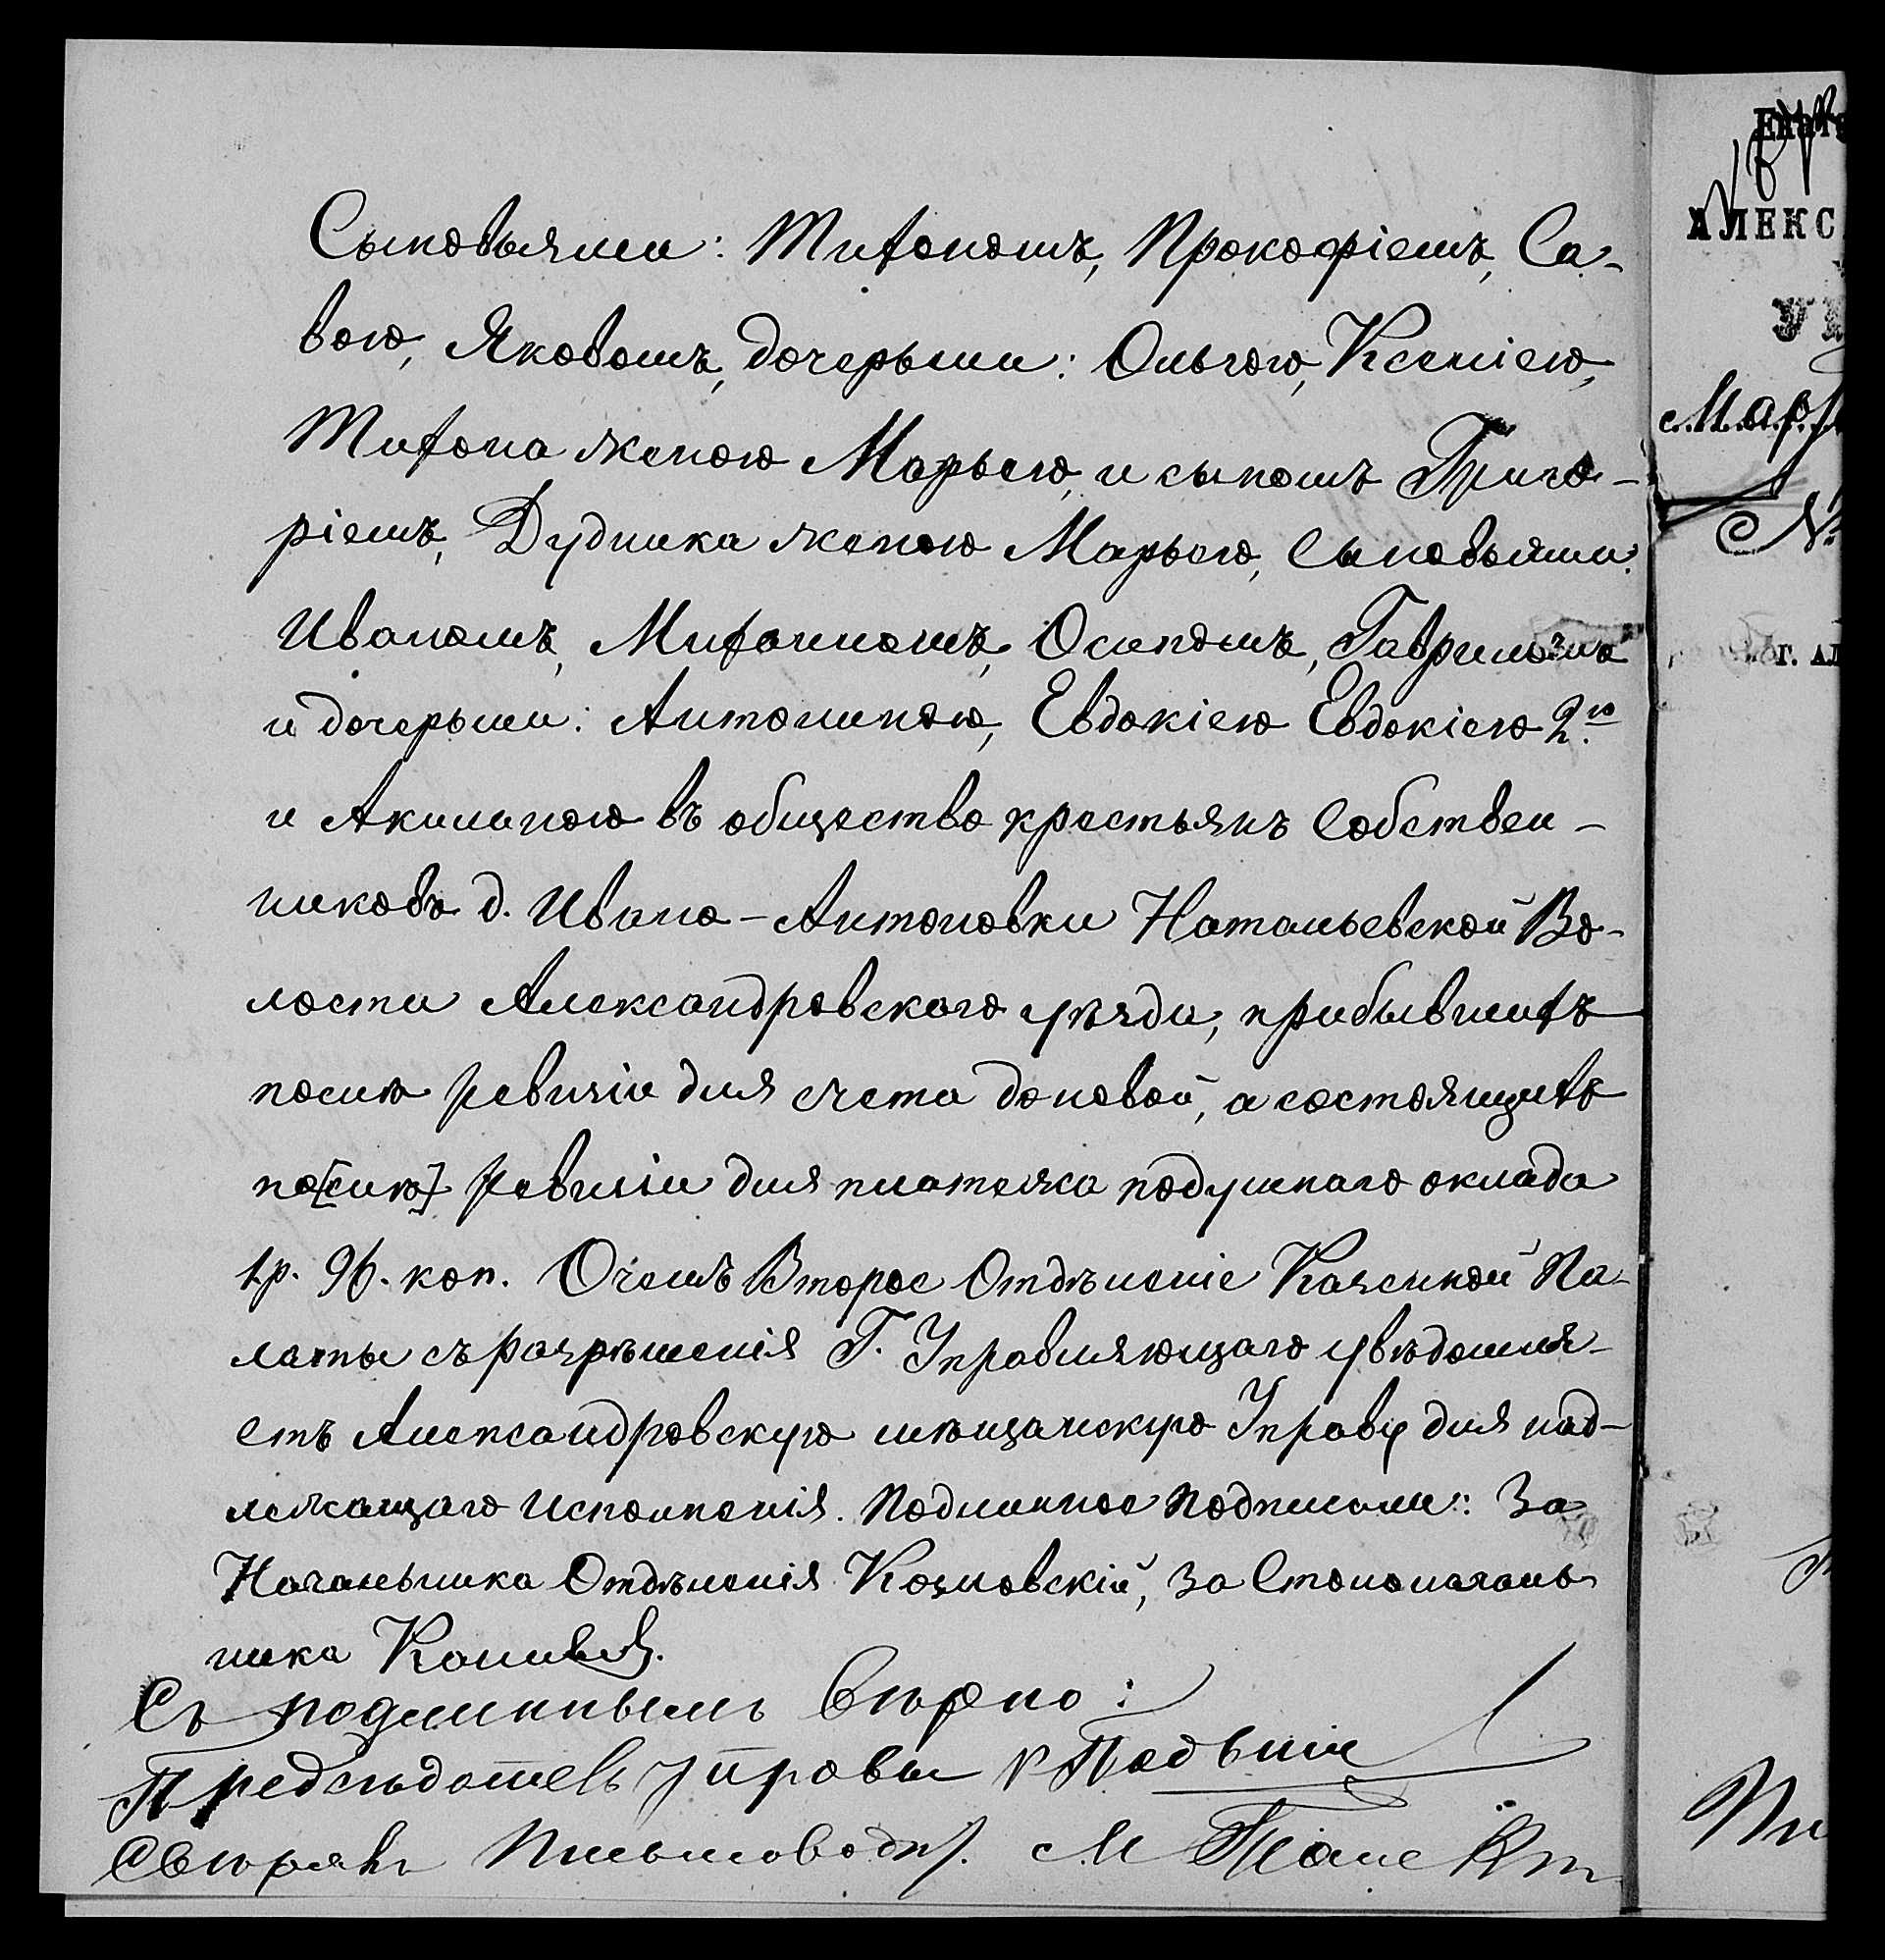 Сыновьями: Тихономъ, Прокофіемъ, Са-
вою, Яковомъ, дочерьми: Ольгою, Ксеніею,
Тихона женою Марьею, и сыномъ Григо-
ріемъ, Дудника женою Марьею, сыновьями:
Иваномъ, Митрофаномъ, Осипомъ, Гавриломъ
и дочерьми: Антониною, Евдокіею Евдокіею 2ю
и Акилиною въ общество крестьянъ собствен-
никовъ д. Ивано-Антоновки Натальевской Во-
лости Александровского уѣзда, прибывшихъ
послѣ ревизіи для счета до новой, а состоящихъ
по[слѣ] ревизіи для платежа подушнаго оклада
1 р. 96. коп. О чемъ Второе Отдѣленіе Казенной Па-
латы съ разрѣшенія Г. Управляющаго увѣдомля-
етъ Александровскую мѣщанскую Управу для над-
лежащаго исполненія. Подлинное подписали: За
Начальника Отдѣленія Козловскій, за Столоначаль-
ника
Съ подлиннымъ вѣрно:
Предсѣдатель управы
Свѣрялъ Письмовод.
АЛЕКС
Мар
№
г. АЛ